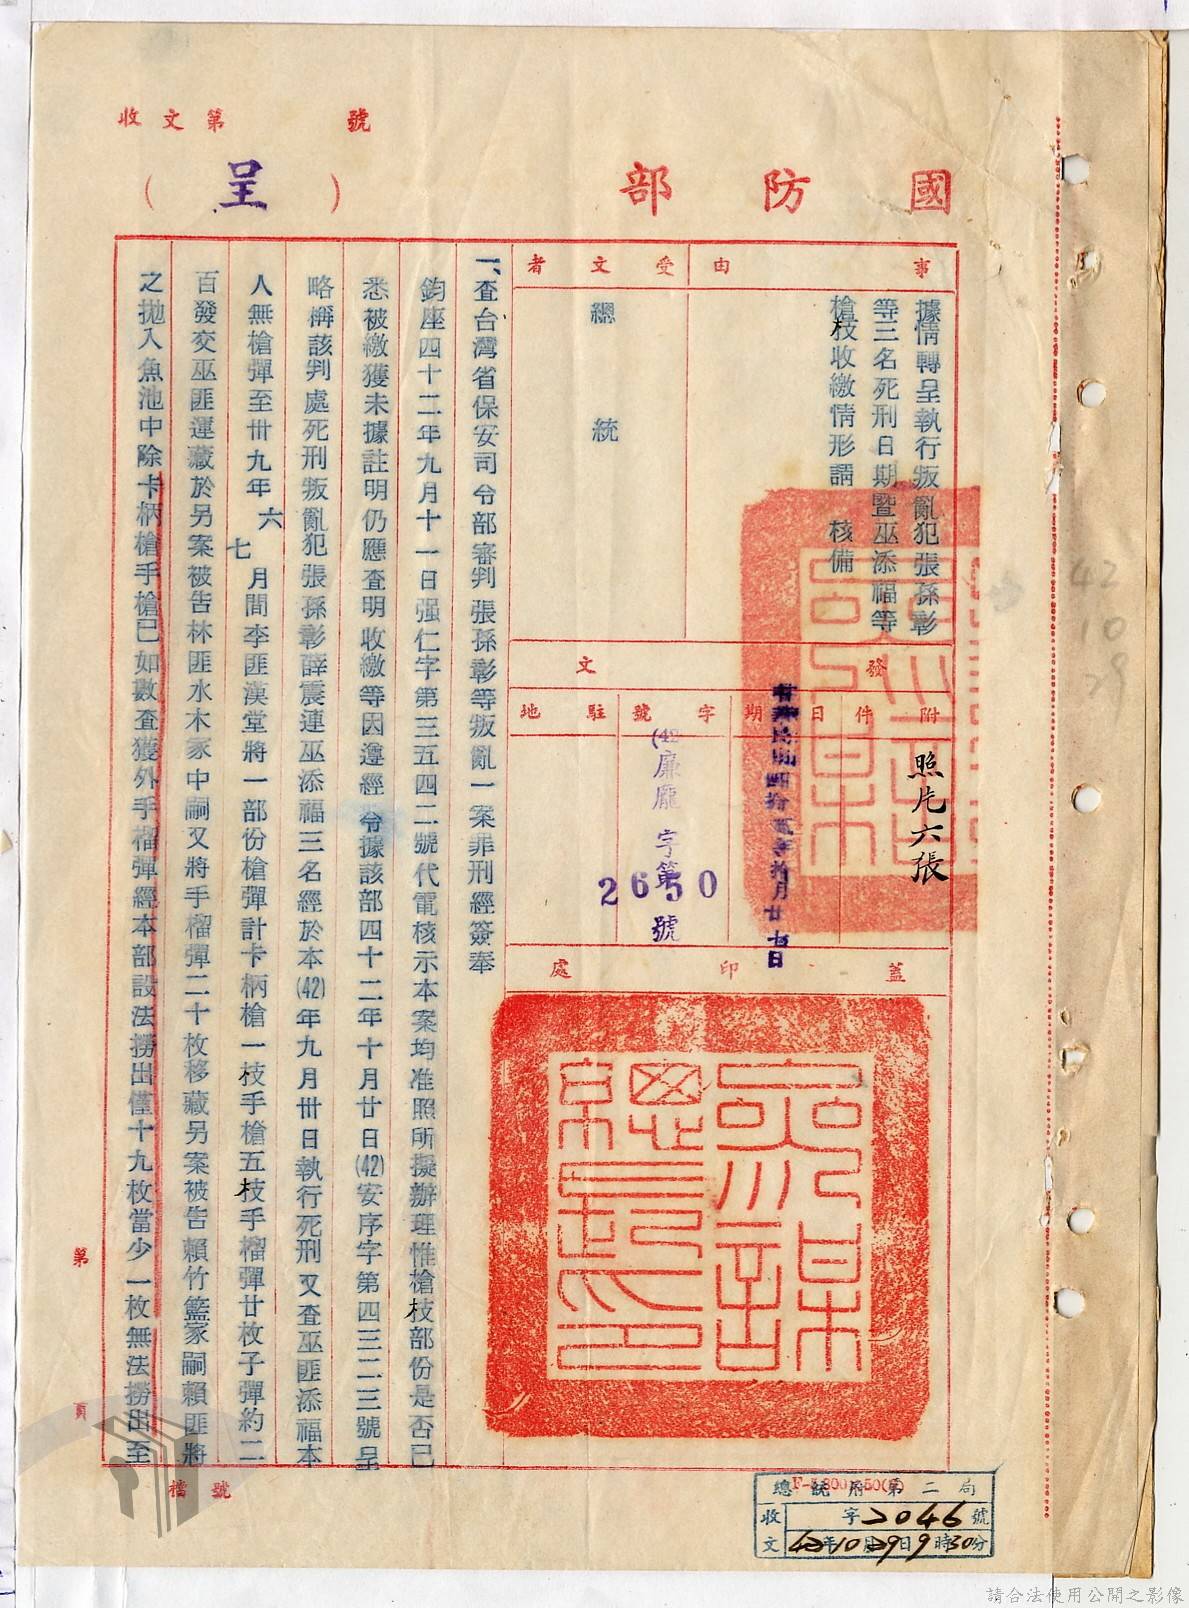 國防部
(呈)
收文第 號
事由
據情轉呈執行叛亂犯張孫彰
等三名死刑日期暨巫添福等
槍枝收繳情形請 核備
受文者
總統
發文
附件
照片六張
日期
中華民國四拾貳年拾月廿七日
字號
(42)廉龐字第
2650
號
駐地
蓋印處
一、查台灣省保安司令部審判張孫彰等叛亂一案罪刑經簽奉
鈞座四十二年九月十一日强仁字第三五四二號代電核示本案均准照所擬辦理惟槍枝部份是否已
悉被繳獲未據註明仍應查明收繳等因遵經令據該部四十二年十月廿日(42)安序字第四三二三號呈
略稱該判處死刑叛亂犯張孫彰薛震連巫添福三名經於本(42)年九月卅日執行死刑又查巫匪添福本
人無槍彈至卅九年六七月間李匪漢堂將一部份槍彈計卡柄槍一枝手槍五枝手榴彈廿枚子彈約二
百發交巫匪運藏於另案被告林匪水木家中嗣又將手榴彈二十枚移藏另案被告賴竹籃家嗣賴匪將
之拋入魚池中除卡柄槍手槍已如數查獲外手榴彈經本部設法撈出僅十九枚當少一枚無法撈出至
第 頁
檔號
總統府第二局
收文 字2046號
42年10月29日9時30分
42
10
29
請合法使用公開之影像